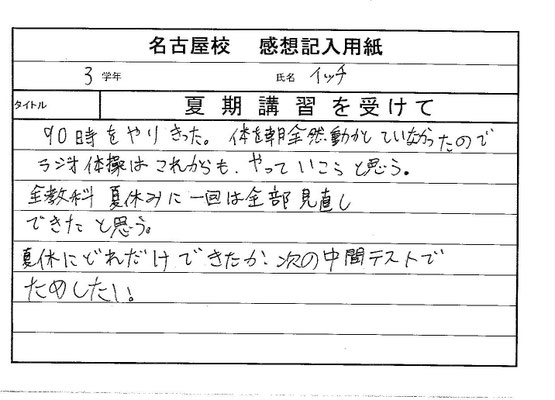 名古屋校 感想記入用紙
3 学年 氏名 イッチ
タイトル 夏期講習を受けて
90時をやりきった。体を朝全然動かしていなかったので
ラジオ体操はこれからも、やっていこうと思う。
全教科 夏休みに一回は全部見直し
できたと思う。
夏休にどれだけできたか、次の中間テストで
ためしたい。